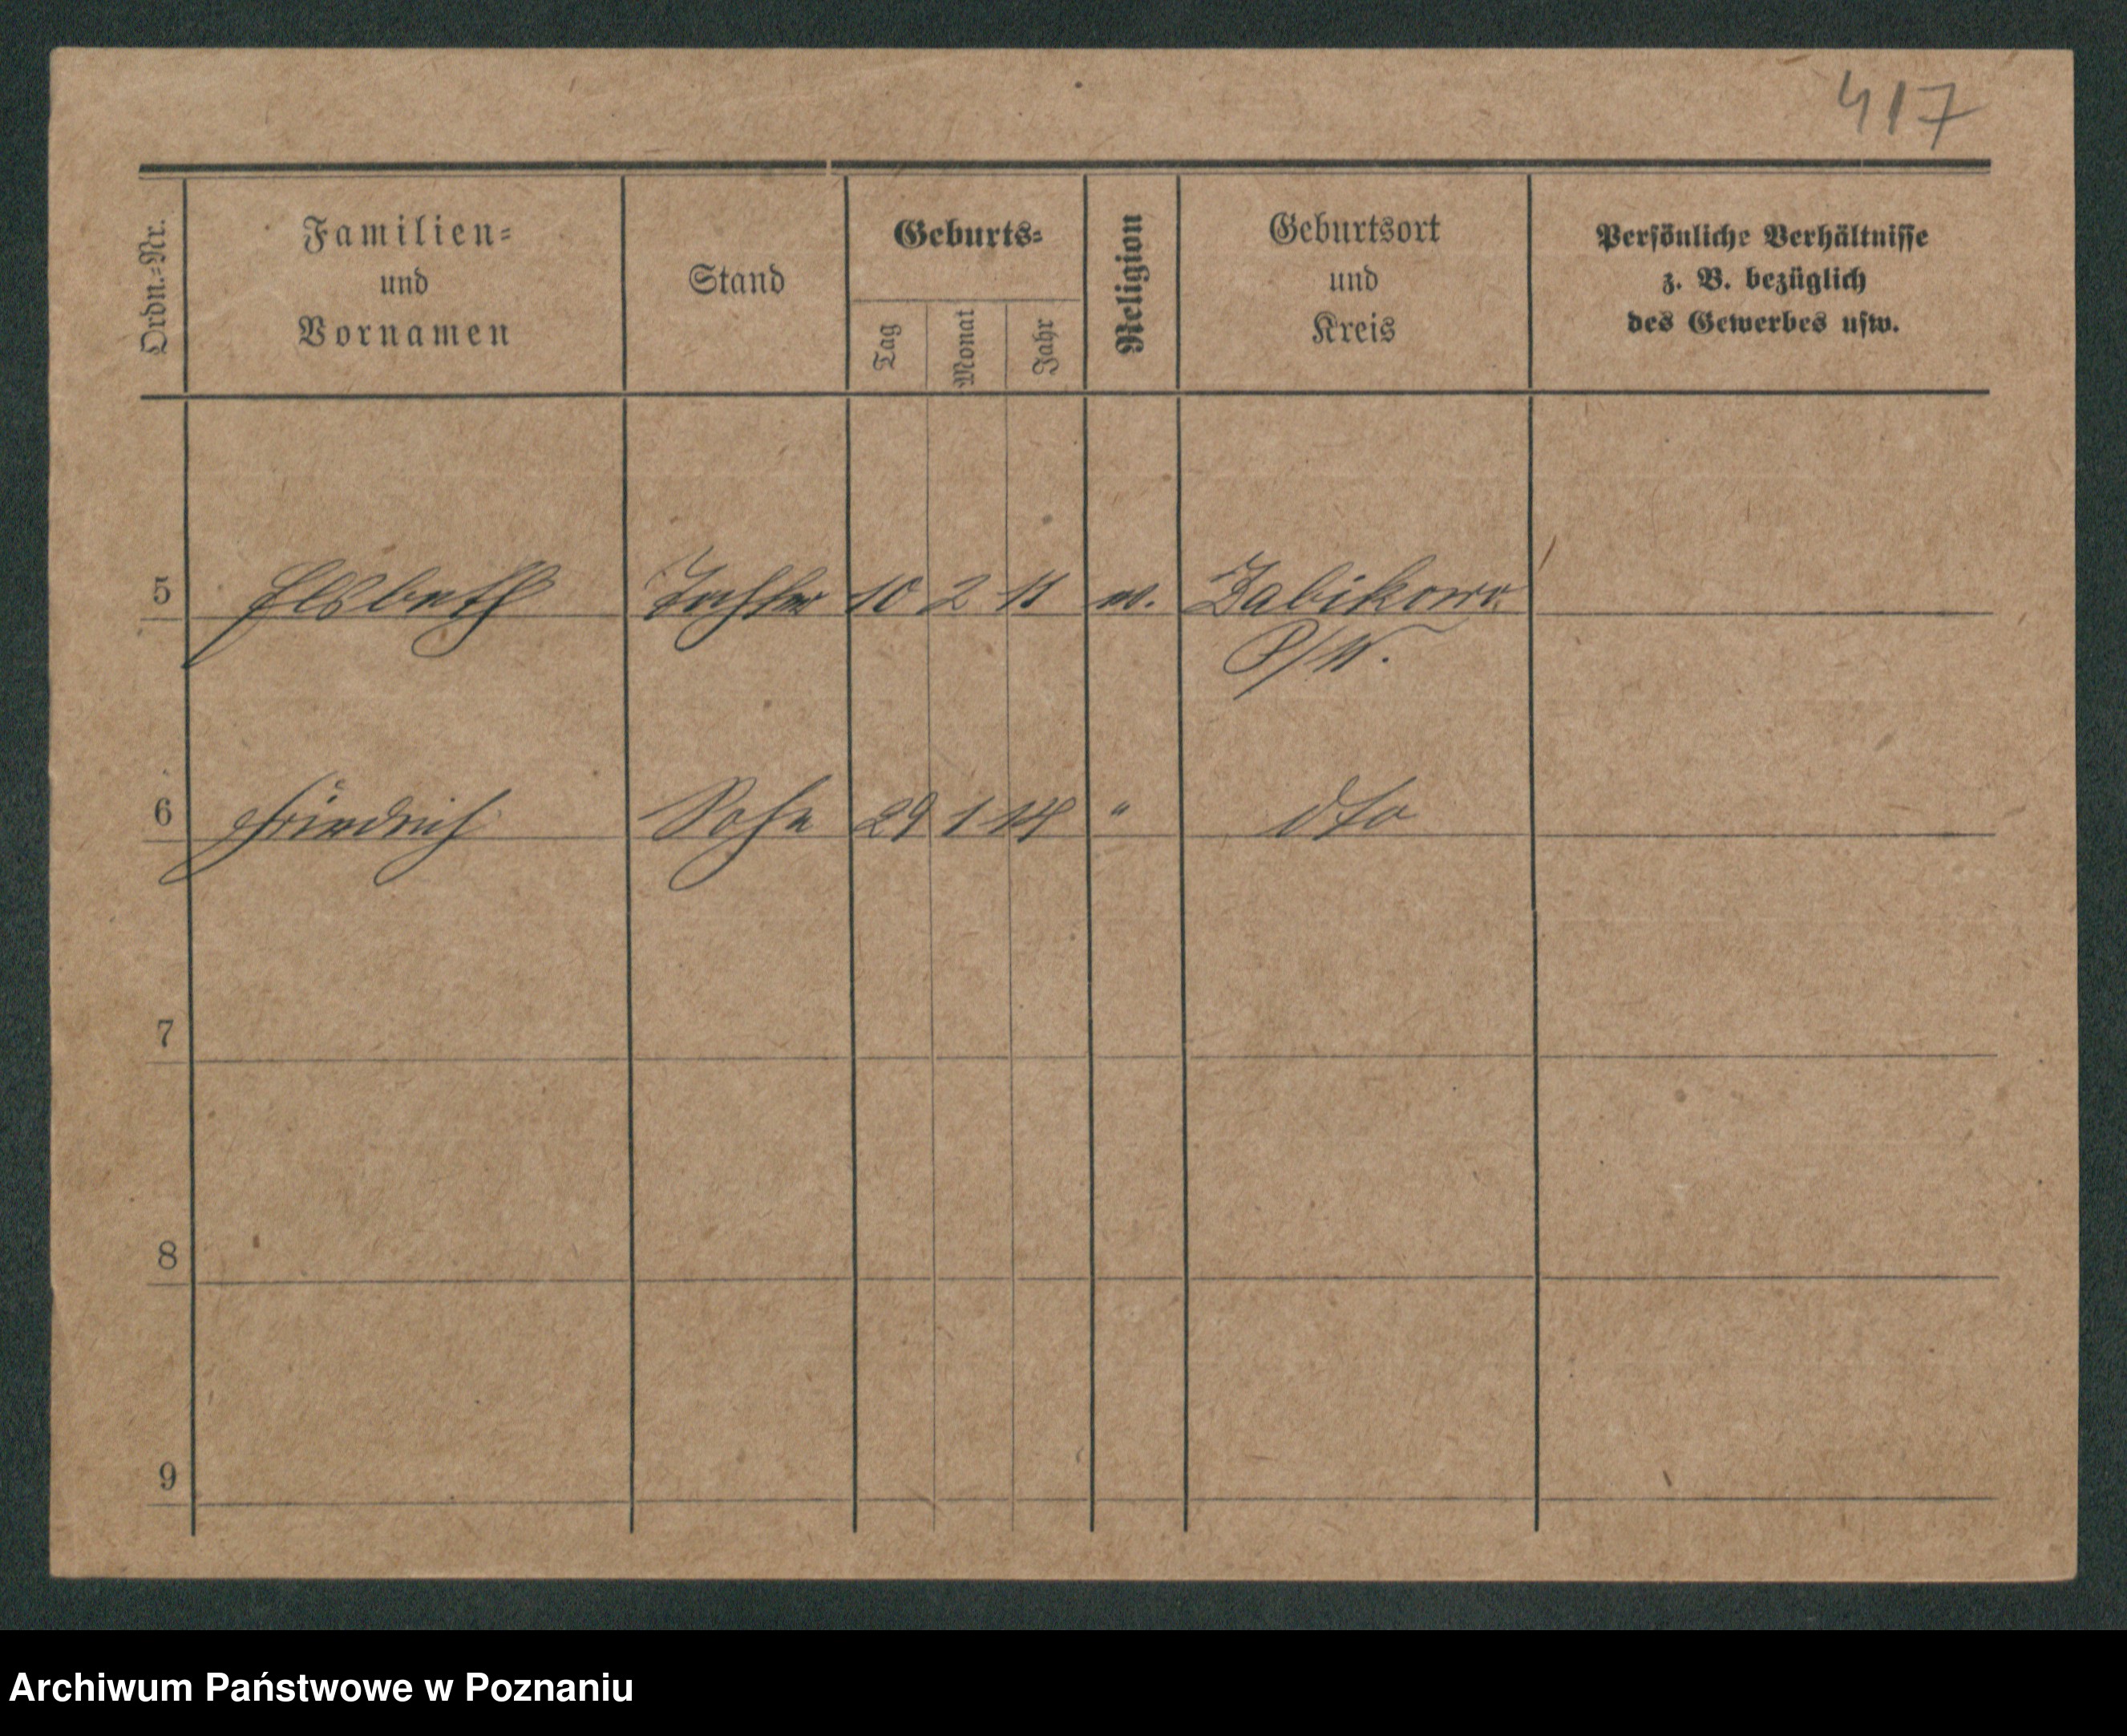 417
Ordn.-Nr.
Familien-
und
Vornamen
Stand
Geburts-
Tag
Monat
Jahr
Religion
Geburtsort
und
Kreis
Persönliche Verhältnisse
z. B. bezüglich
des Gewerbes usw.
5 Elsbeth Tochter 10 2 11 Zabikowo
P/W.
6 Friedrich Sohn 29 1 14 " dto
7
8
9
Archiwum Państwowe w Poznaniu